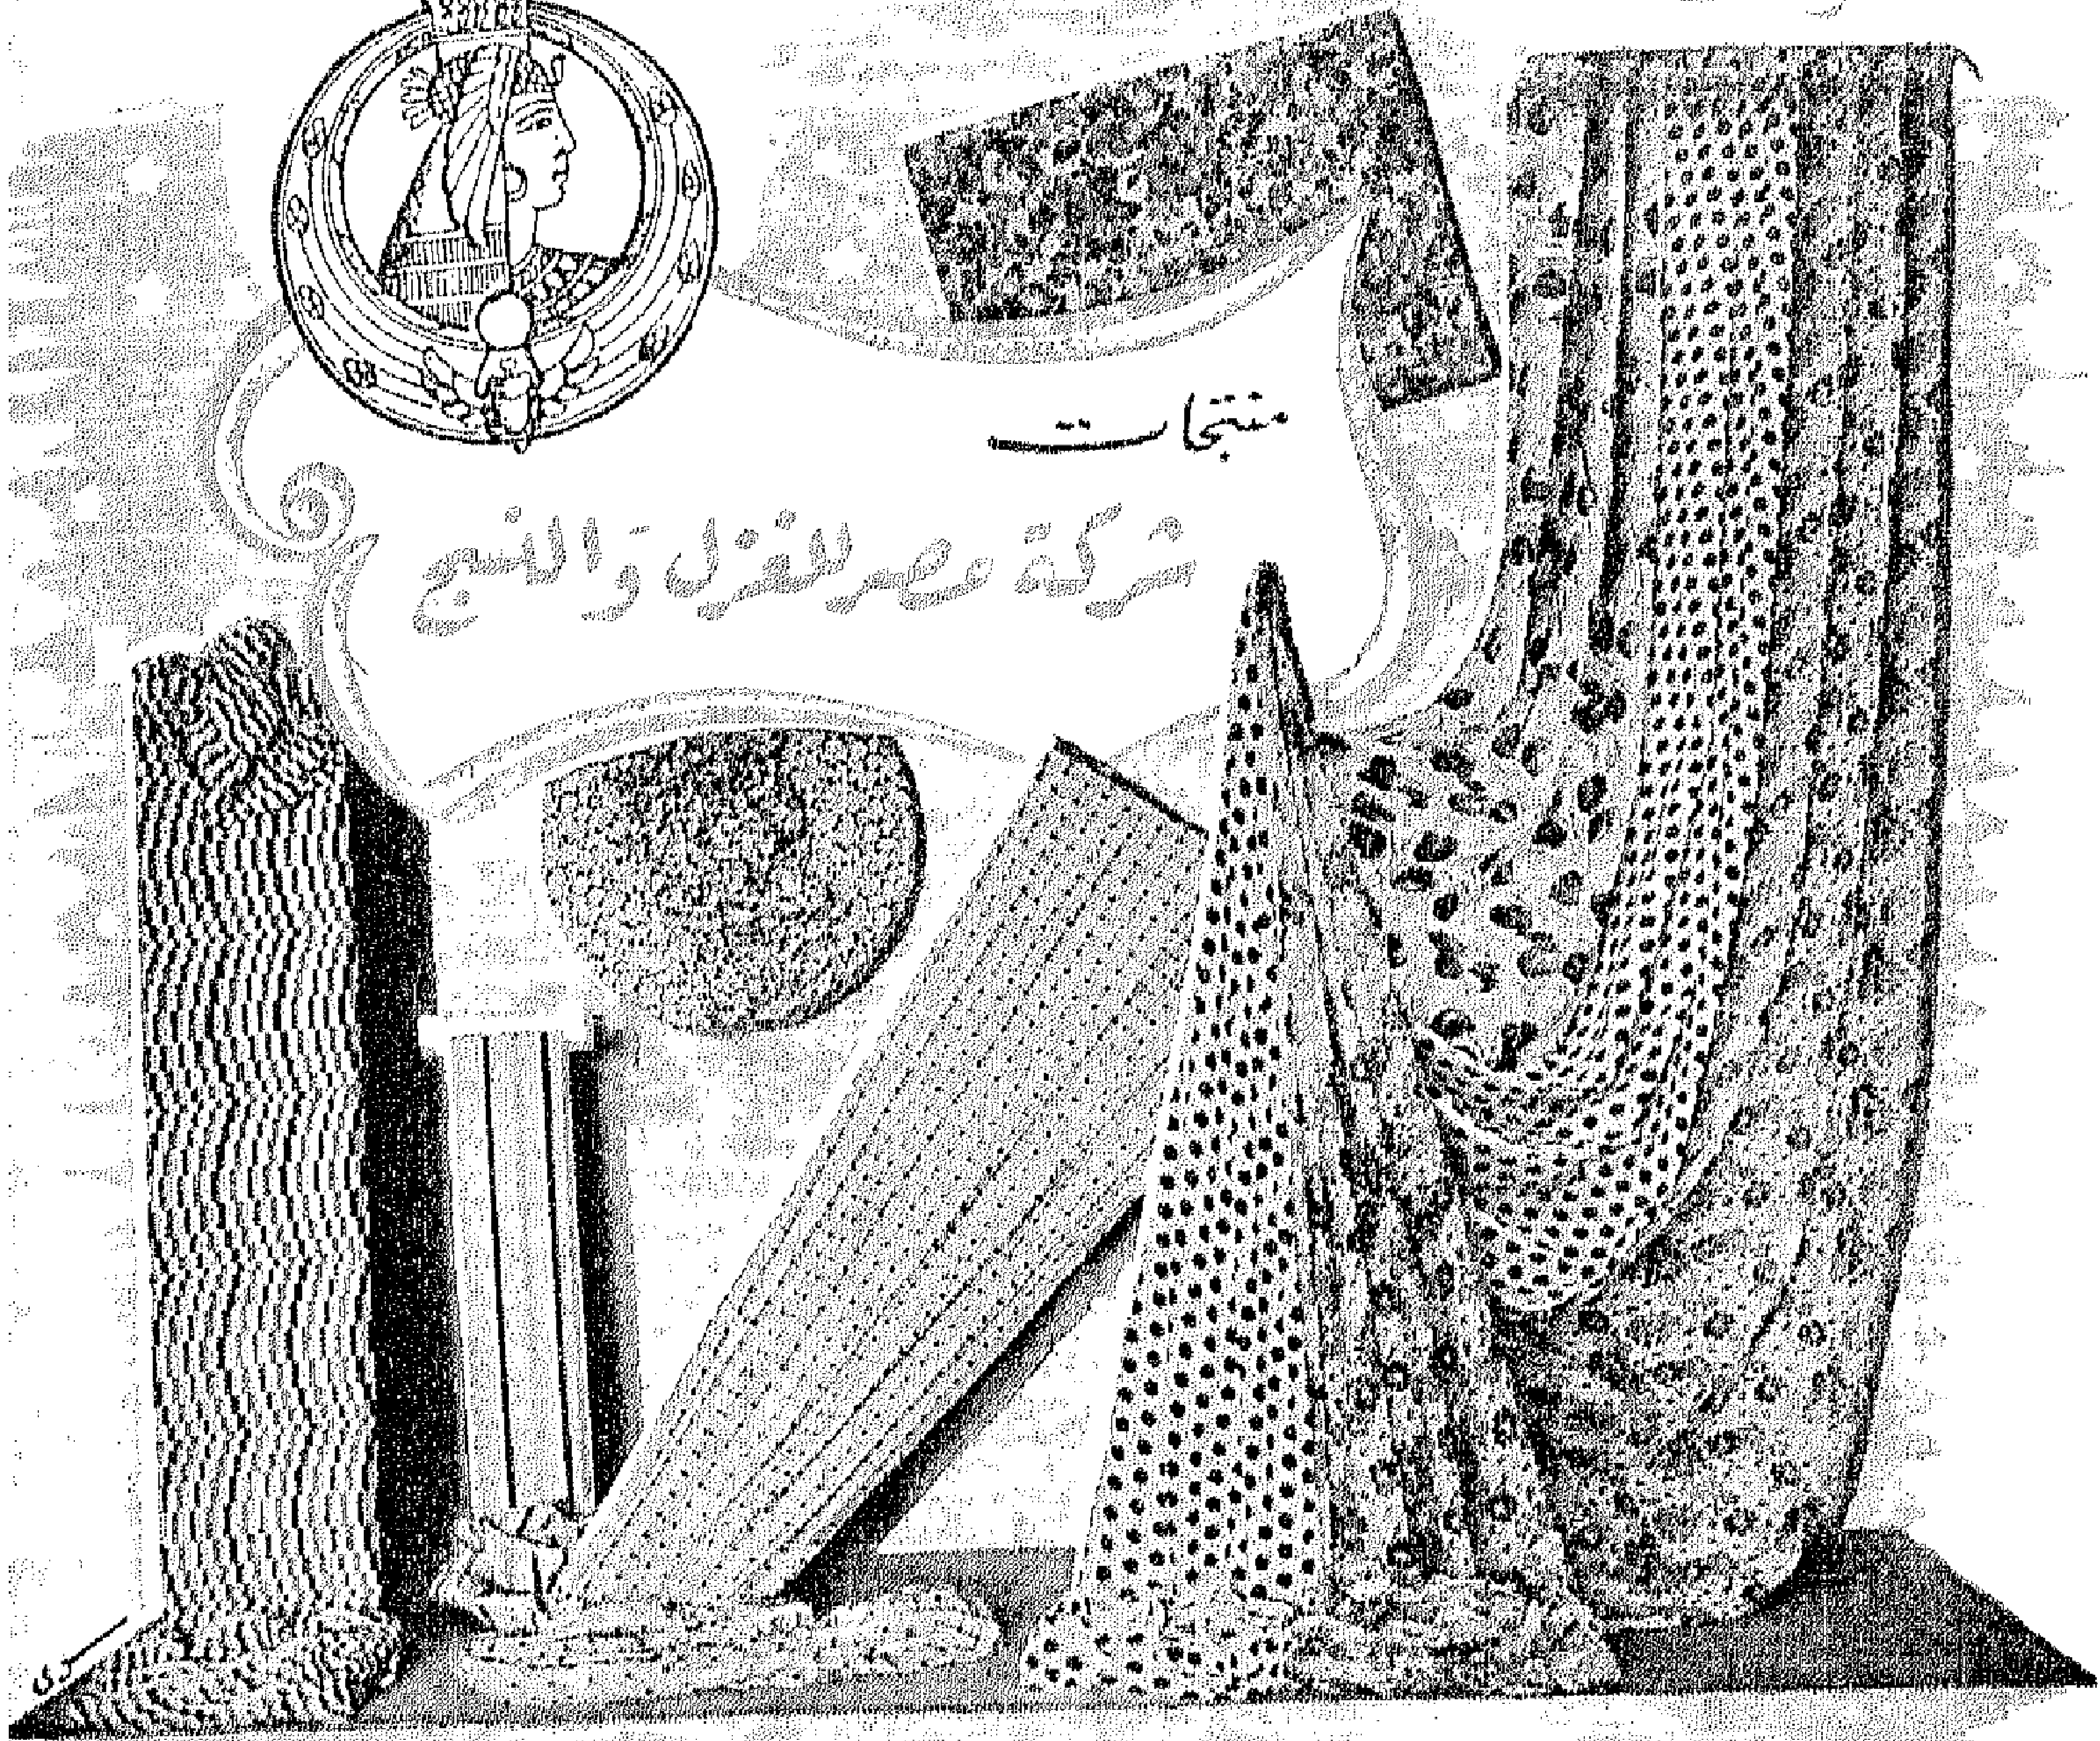 منتجات
شركة مصر للغزل والنسيج